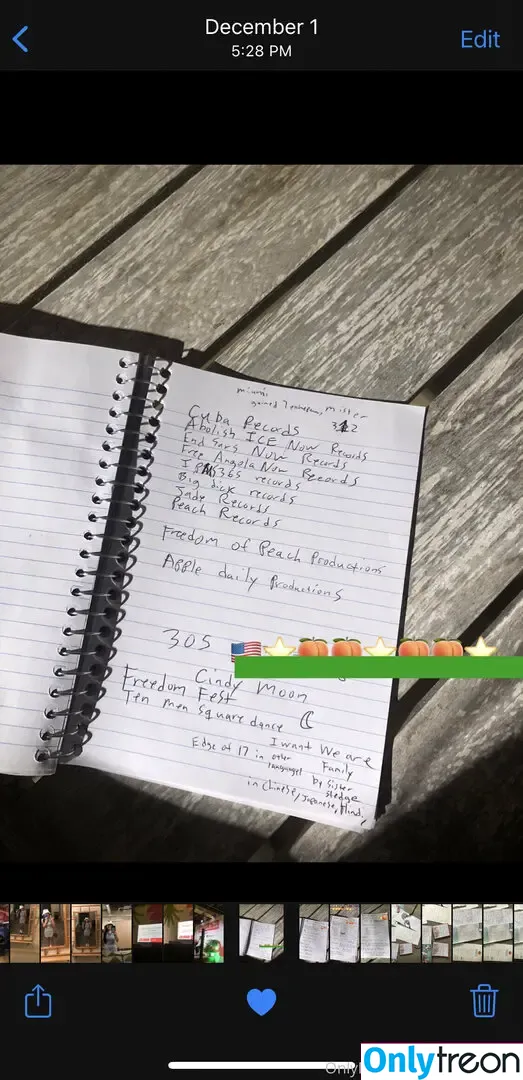 December 1
5:28 PM
Edit
miami
gained 7 Mister
Cuba Records 312
Abolish ICE Now Records
End Sars Now Records
Free Angola Now Records
365 records
Big dick records
Jade Records
Peach Records
Freedom of Peach Productions
Apple daily Productions
305
Cindy Moon
Freedom Fest
Ten men square dance
I want We are
Edge of 17 in other Family
languages by Sister
Sledge
in Chinese, Japanese, Hindi,
Onlytreon